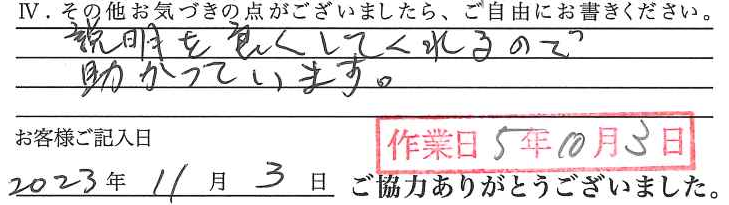 Ⅳ．その他お気づきの点がございましたら、ご自由にお書きください。
説明を良くしてくれるので
助かっています。
お客様ご記入日
作業日 5年10月3日
2023年 11月 3日 ご協力ありがとうございました。